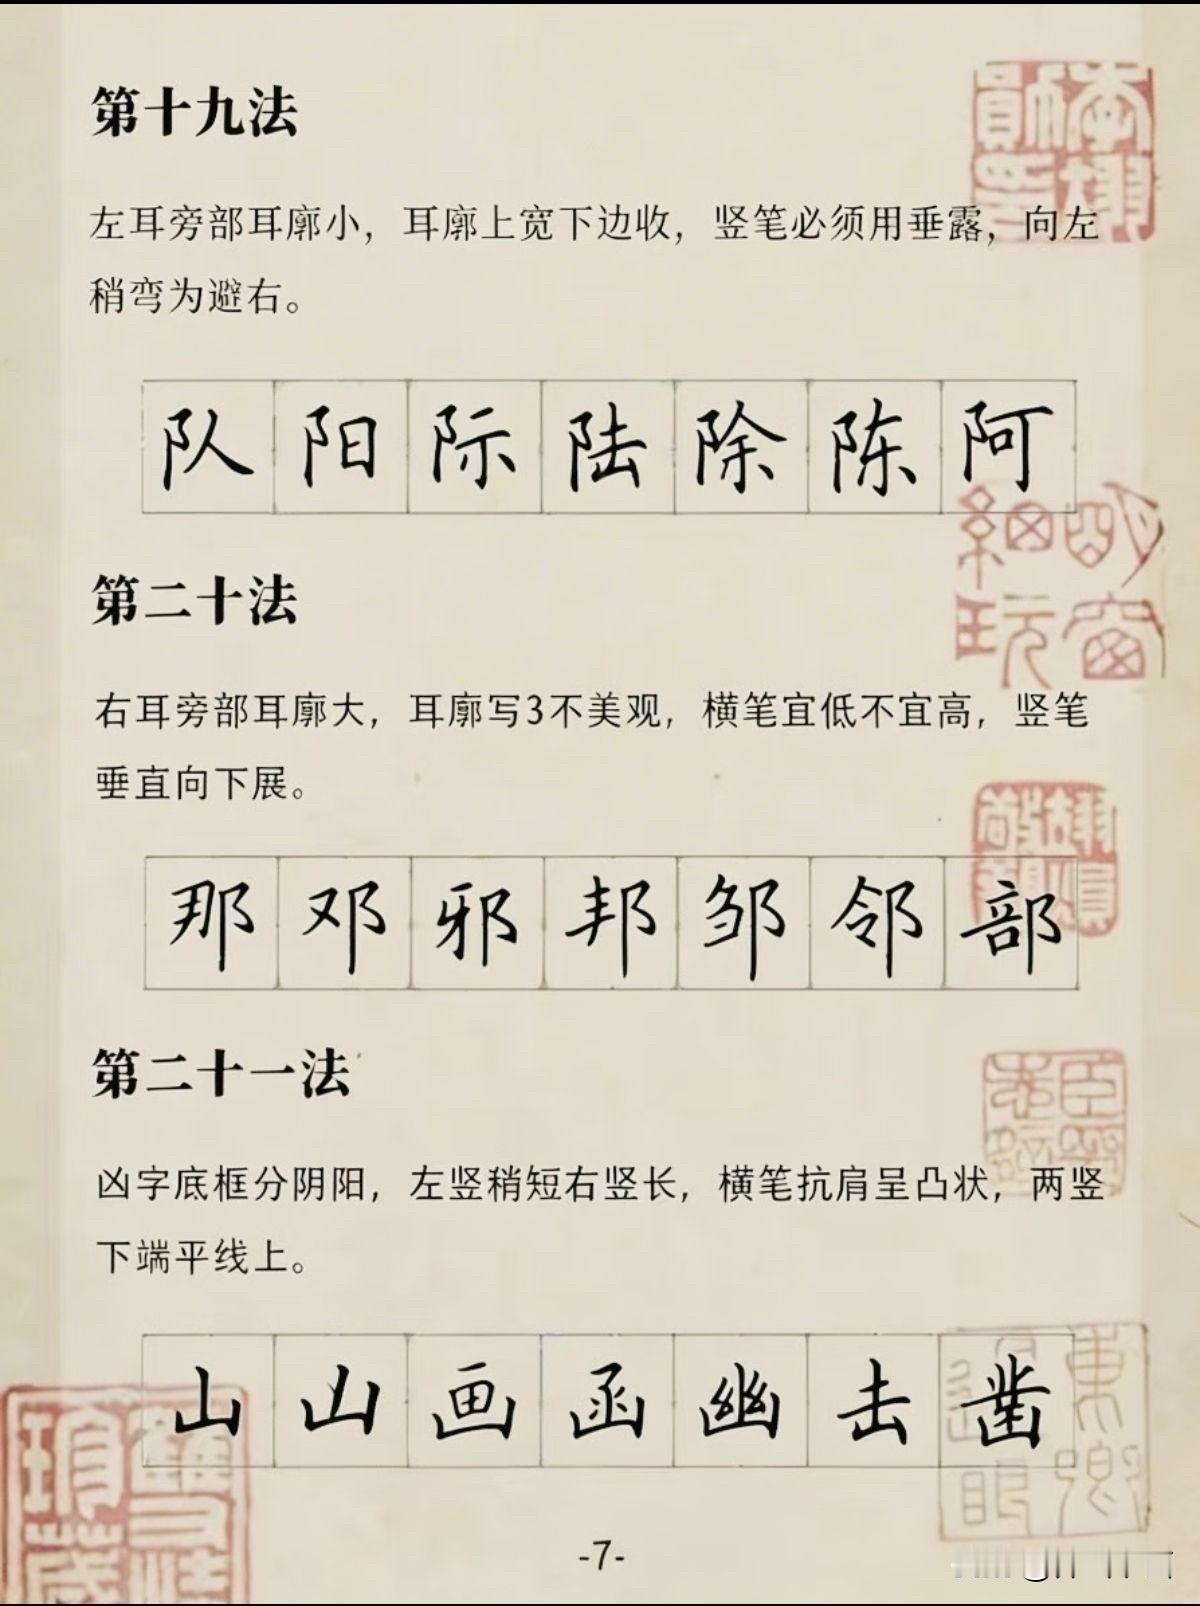 第十九法
左耳旁部耳廓小，耳廓上宽下边收，竖笔必须用垂露，向左
稍弯为避右。
队阳际陆除陈阿
第二十法
右耳旁部耳廓大，耳廓写3不美观，横笔宜低不宜高，竖笔
垂直向下展。
那邓邪邦邹邻部
第二十一法
凶字底框分阴阳，左竖稍短右竖长，横笔抗肩呈凸状，两竖
下端平线上。
山山画函幽击凿
-7-